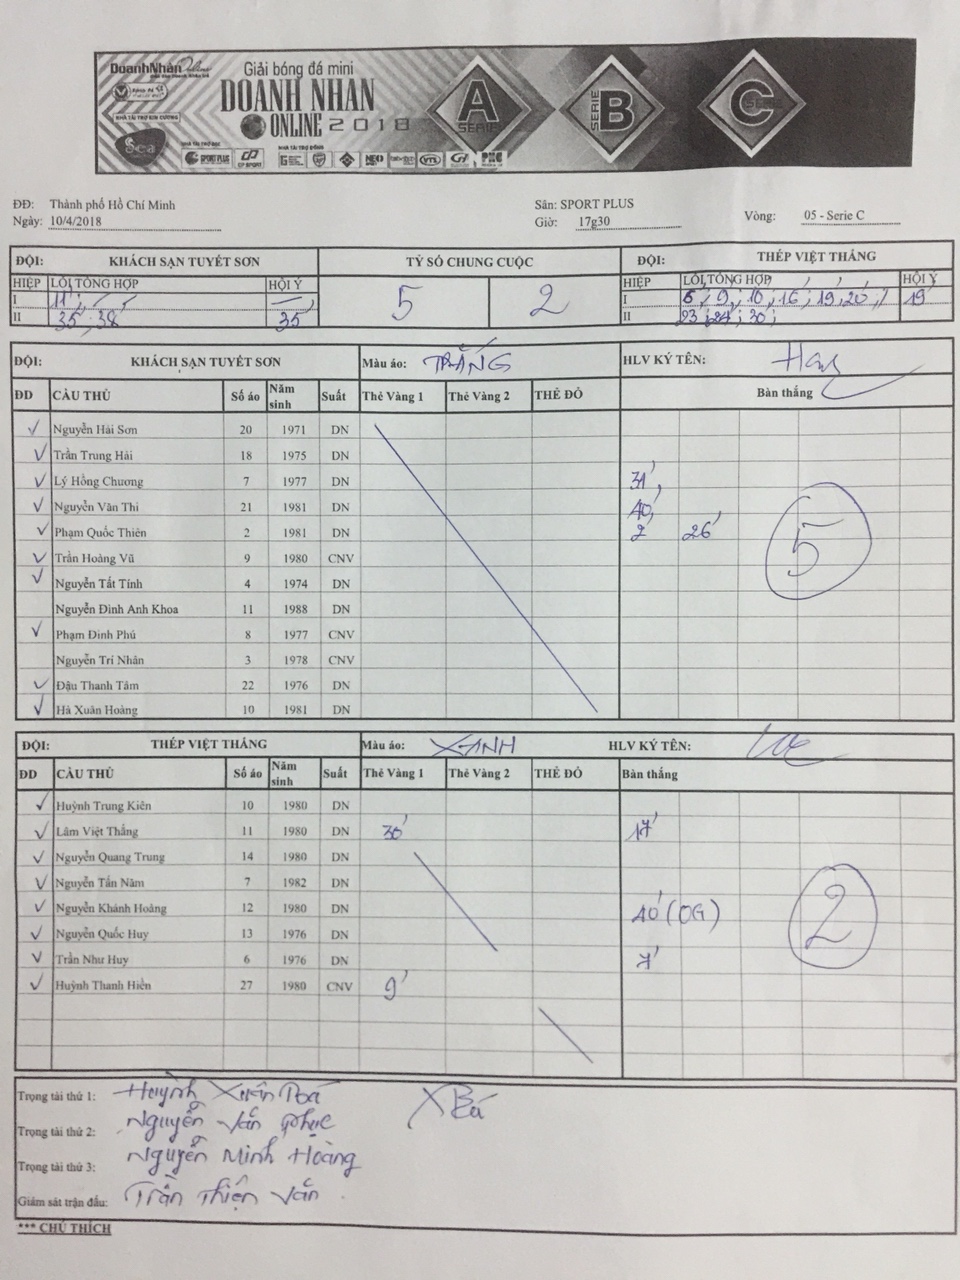 DoanhNhanOnline
Giải bóng đá mini
DOANH NHAN
ONLINE 2018
NHÀ TÀI TRỢ KIM CƯƠNG
Sea
NHÀ TÀI TRỢ BẠC
NHÀ TÀI TRỢ ĐỒNG
SPORT PLUS
CP SPORT
NEO
A
SERIE
SERIE
B
C
ĐĐ: Thành phố Hồ Chí Minh Sân: SPORT PLUS
Ngày: 10/4/2018 Giờ: 17g30 Vòng: 05 - Serie C
ĐỘI: KHÁCH SẠN TUYẾT SƠN TỶ SỐ CHUNG CUỘC ĐỘI: THÉP VIỆT THẮNG
HIỆP LỖI TỔNG HỢP HỘI Ý 5 2 HIỆP LỖI TỔNG HỢP HỘI Ý
I 11' I 6', 9', 10', 16', 19', 20' 19'
II 35', 38' 35' II 23', 24', 30'
ĐỘI: KHÁCH SẠN TUYẾT SƠN Màu áo: TRẮNG HLV KÝ TÊN:
ĐD CẦU THỦ Số áo Năm sinh Suất Thẻ Vàng 1 Thẻ Vàng 2 THẺ ĐỎ Bàn thắng
✓ Nguyễn Hải Sơn 20 1971 DN
✓ Trần Trung Hải 18 1975 DN
✓ Lý Hồng Chương 7 1977 DN 31'
✓ Nguyễn Văn Thi 21 1981 DN 40'
✓ Phạm Quốc Thiên 2 1981 DN 2' 26' 5
✓ Trần Hoàng Vũ 9 1980 CNV
✓ Nguyễn Tất Tính 4 1974 DN
Nguyễn Đình Anh Khoa 11 1988 DN
✓ Phạm Đình Phú 8 1977 CNV
Nguyễn Trí Nhân 3 1978 CNV
✓ Đậu Thanh Tâm 22 1976 DN
✓ Hà Xuân Hoàng 10 1981 DN
ĐỘI: THÉP VIỆT THẮNG Màu áo: XANH HLV KÝ TÊN:
ĐD CẦU THỦ Số áo Năm sinh Suất Thẻ Vàng 1 Thẻ Vàng 2 THẺ ĐỎ Bàn thắng
✓ Huỳnh Trung Kiên 10 1980 DN
✓ Lâm Việt Thắng 11 1980 DN 30' 17'
✓ Nguyễn Quang Trung 14 1980 DN
✓ Nguyễn Tấn Năm 7 1982 DN
✓ Nguyễn Khánh Hoàng 12 1980 DN 40' (OG) 2
✓ Nguyễn Quốc Huy 13 1976 DN
✓ Trần Như Huy 6 1976 DN 7'
✓ Huỳnh Thanh Hiền 27 1980 CNV 9'
Trọng tài thứ 1: Huỳnh Xuân Bá XBá
Trọng tài thứ 2: Nguyễn Văn Phục
Trọng tài thứ 3: Nguyễn Minh Hoàng
Giám sát trận đấu: Trần Thiện Văn
*** CHÚ THÍCH